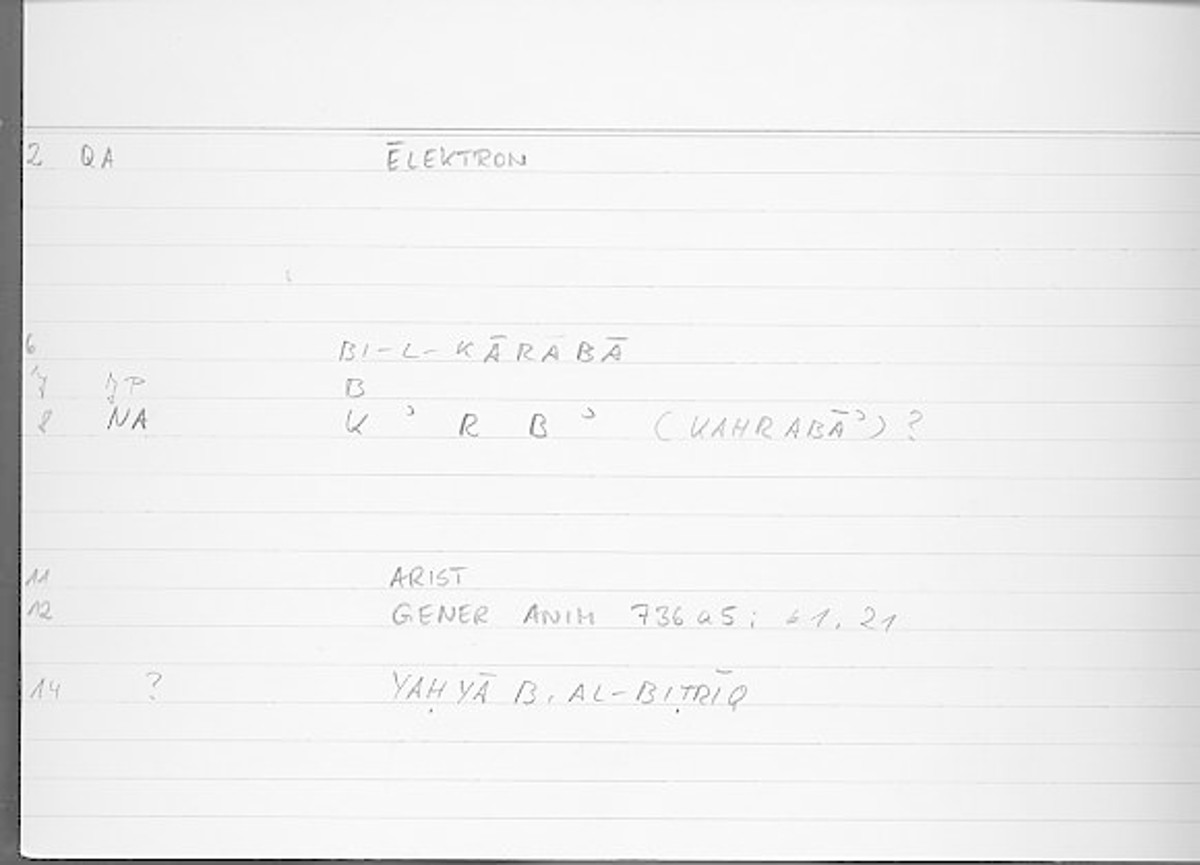 2 QA ĒLEKTRON
6 BI-L-KĀRABĀ
7 JP B
8 NA K ʾ R B ʾ (KAHRABĀʾ)?
11 ARIST
12 GENER ANIM 736 a5; 61, 21
14 ? YAḤYĀ B. AL-BIṬRĪQ